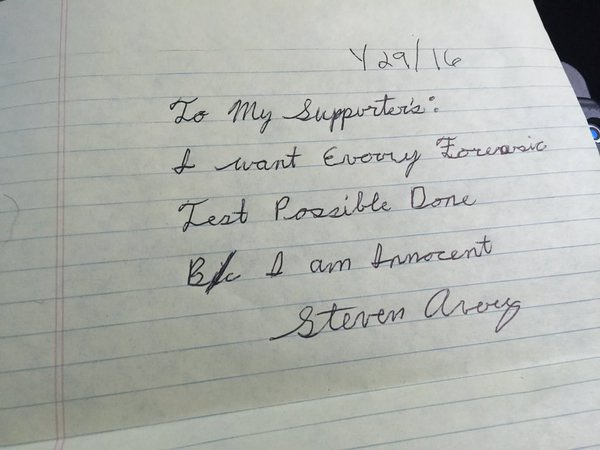 Y29/16
To My Supporter's:
I want Evory Forensic
Test Possible Done
B/c I am Innocent
Steven Avery